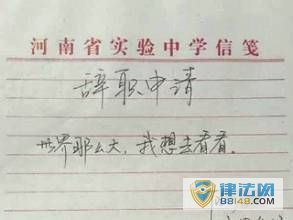 河南省实验中学信笺
辞职申请
世界那么大，我想去看看。
律法网
88148.com